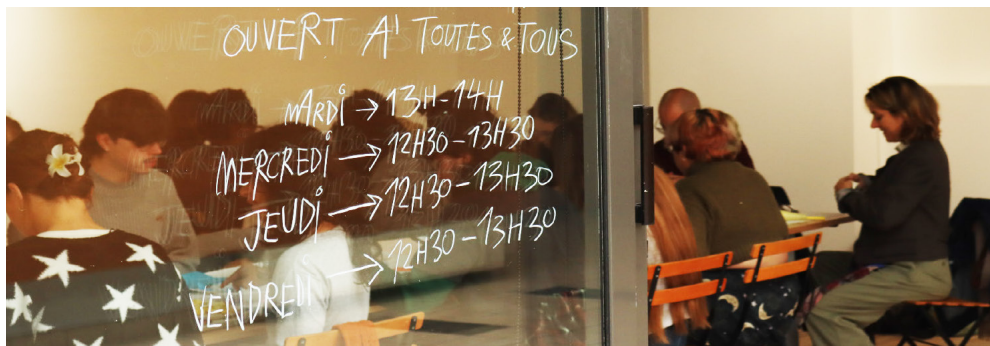 OUVERT A' TOUTES & TOUS
MARDI → 13H-14H
MERCREDI → 12H30-13H30
JEUDI → 12H30-13H30
VENDREDI → 12H30-13H30